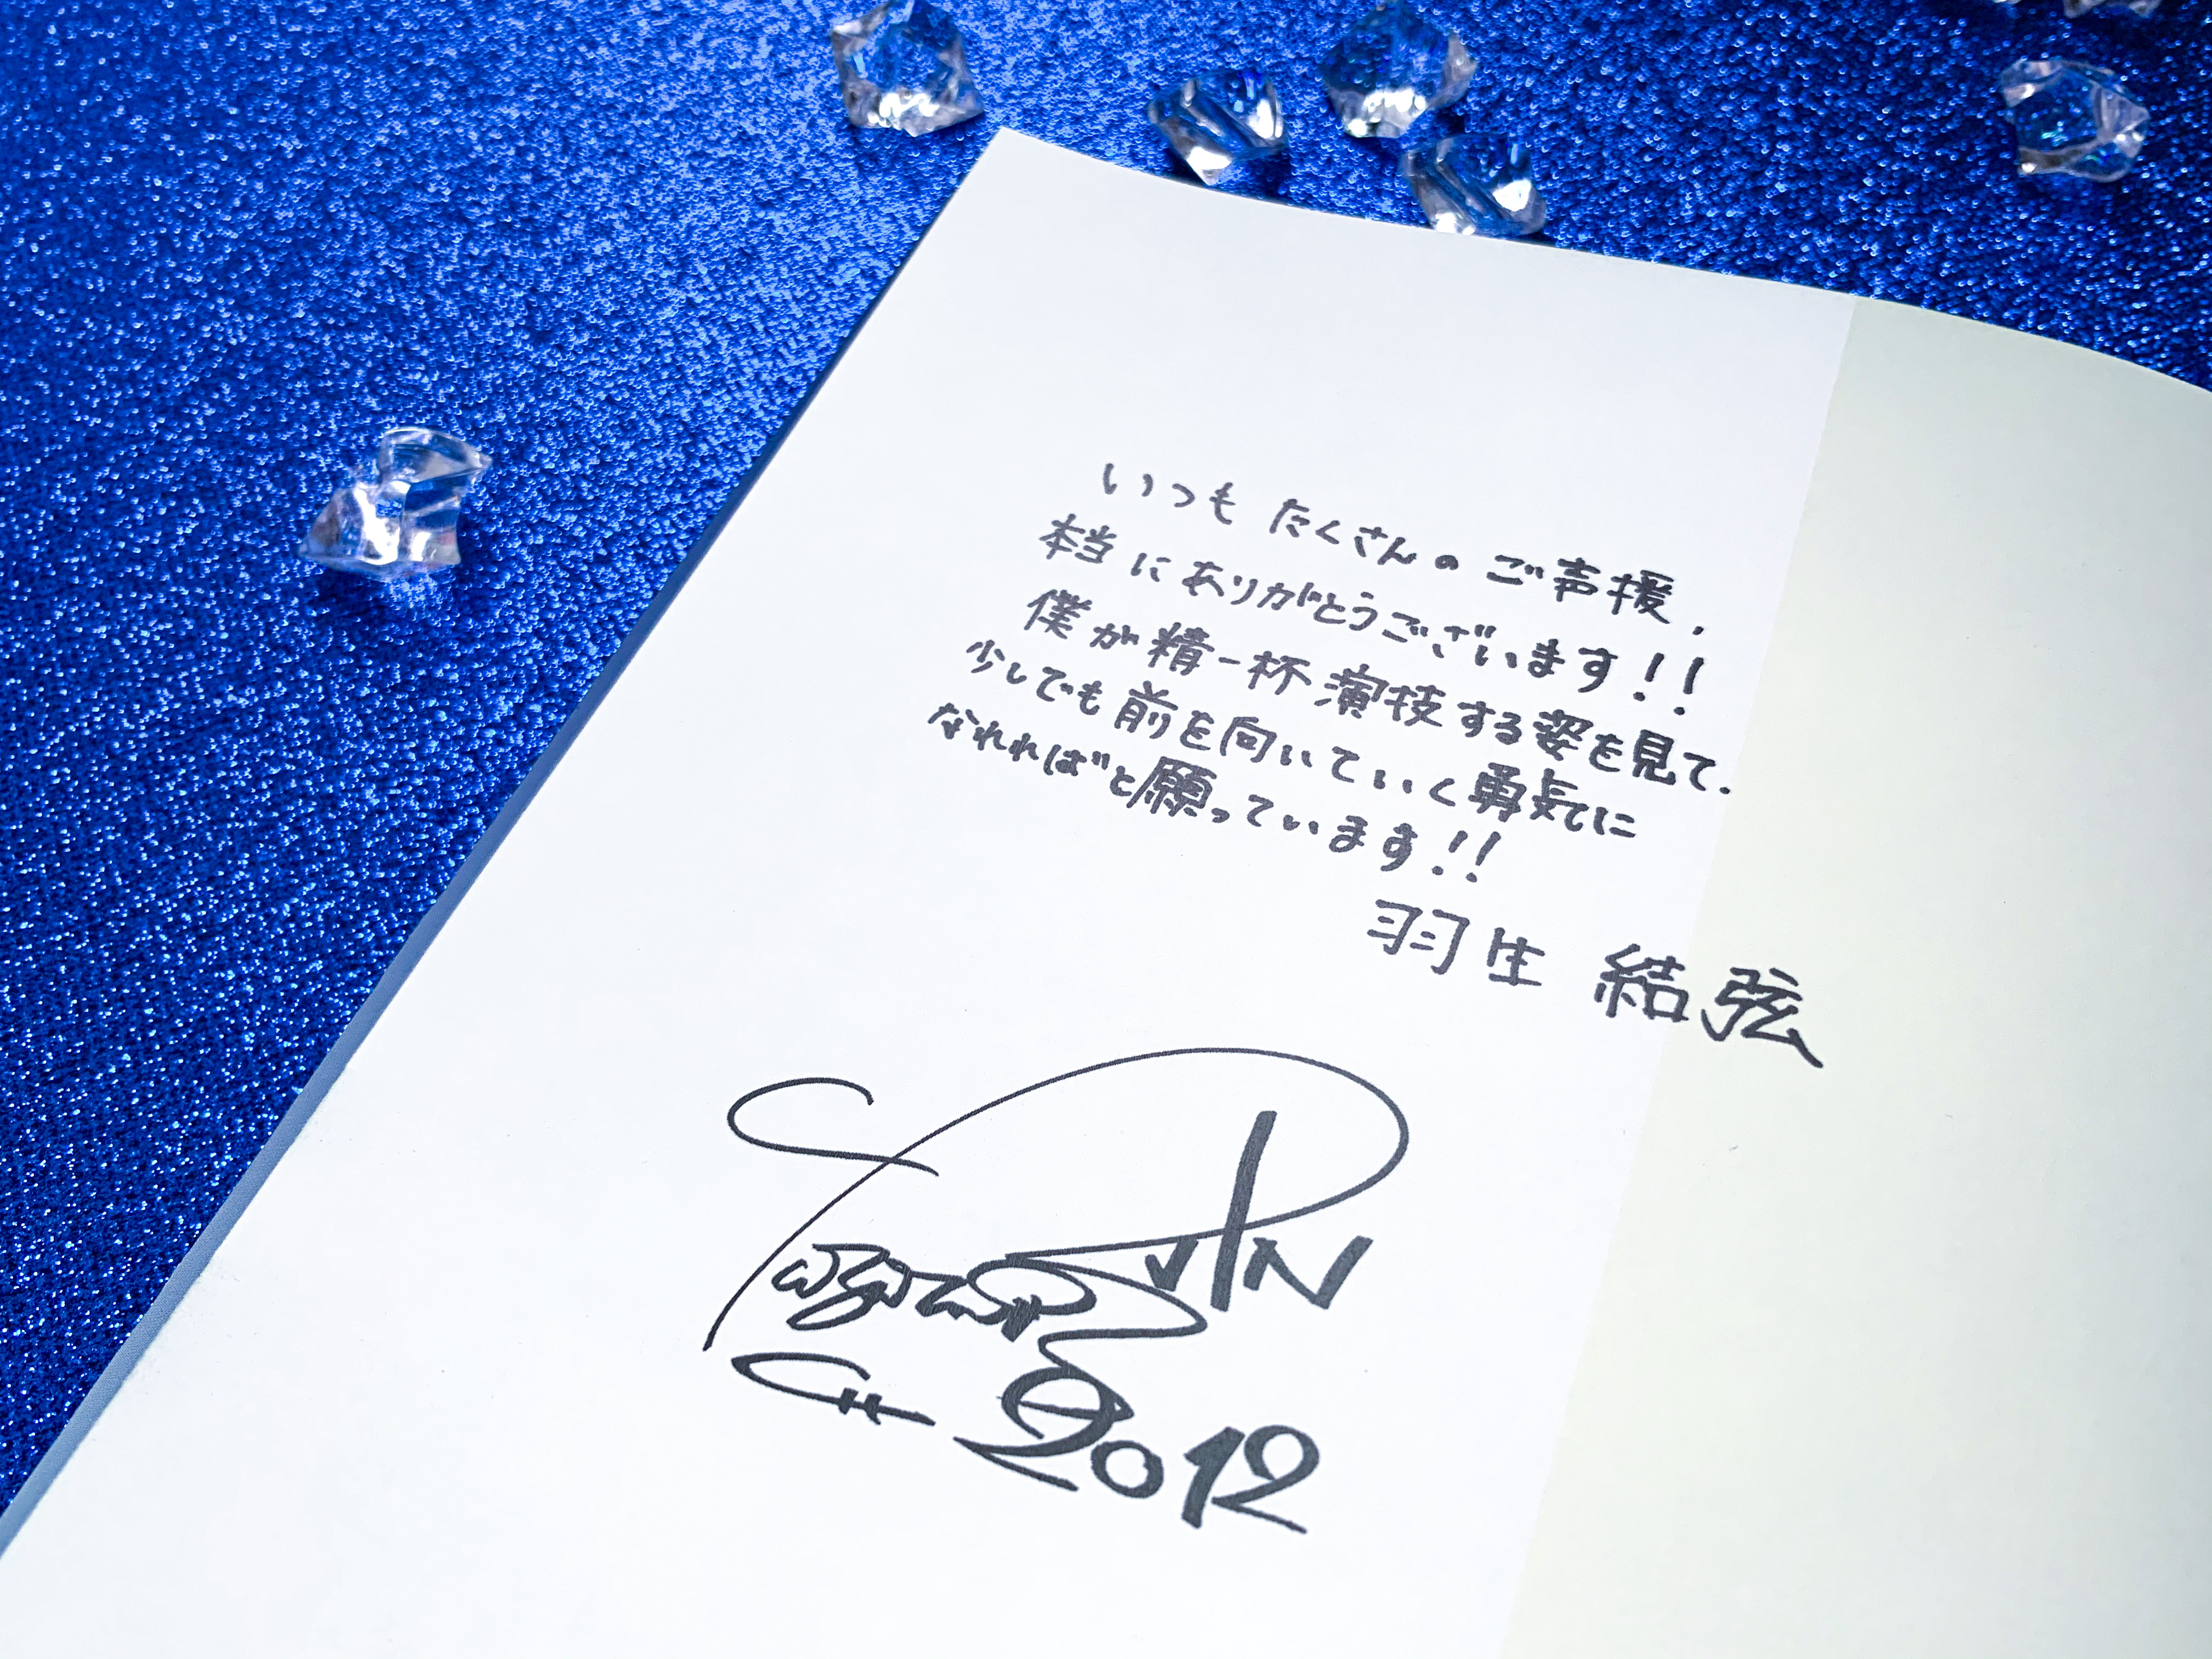 いつも たくさんの ご声援、
本当に ありがとうございます!!
僕が精一杯演技する姿を見て、
少しでも前を向いていく勇気に
なれればと願っています!!
羽生 結弦
2012